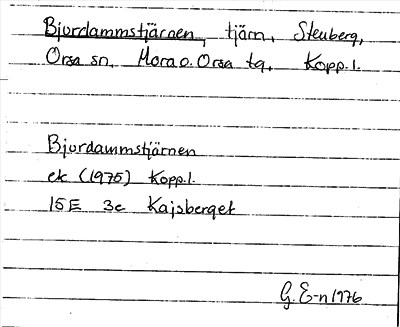 Bjurdammstjärnen, tjärn, Stenberg,
Orsa sn, Mora o. Orsa tg, Kopp.l.
Bjurdammstjärnen
ek (1975) Kopp.l.
15E 3c Kajsberget
G. E-n 1976